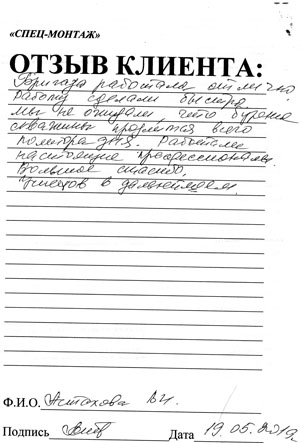 «СПЕЦ-МОНТАЖ»
ОТЗЫВ КЛИЕНТА:
Бригада работала отлично
работу сделали быстро
мы не ожидали, что бурение
скважины продлится всего
полтора дня. Работали
настоящие профессионалы.
Большое спасибо.
Успехов в дальнейшем.
Ф.И.О. Астахова В.И.
Подпись Дата 19.05.2019